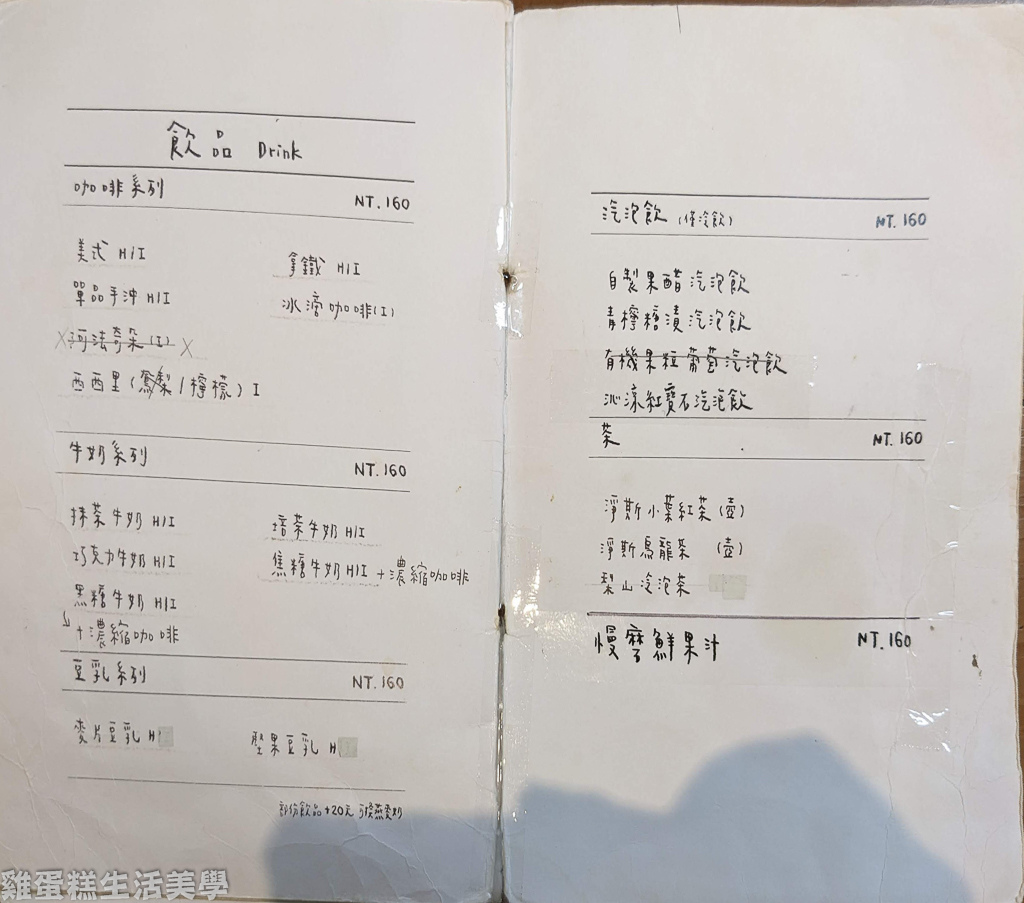 飲品 Drink
咖啡系列 NT.160
美式 H/I 拿鐵 H/I
單品手沖 H/I 冰滴咖啡(I)
X 阿法奇朵(I) X
西西里(鳳梨/檸檬) I
牛奶系列 NT.160
抹茶牛奶 H/I 焙茶牛奶 H/I
巧克力牛奶 H/I 焦糖牛奶 H/I +濃縮咖啡
黑糖牛奶 H/I
↘ +濃縮咖啡
豆乳系列 NT.160
麥片豆乳 H 堅果豆乳 H
部份飲品+20元 可換燕麥奶
汽泡飲(僅冷飲) NT.160
自製果醋汽泡飲
青檸糖漬汽泡飲
有機果粒葡萄汽泡飲
沁涼紅寶石汽泡飲
茶 NT.160
淨斯小葉紅茶(壺)
淨斯烏龍茶 (壺)
梨山冷泡茶
慢磨鮮果汁 NT.160
雞蛋糕生活美學